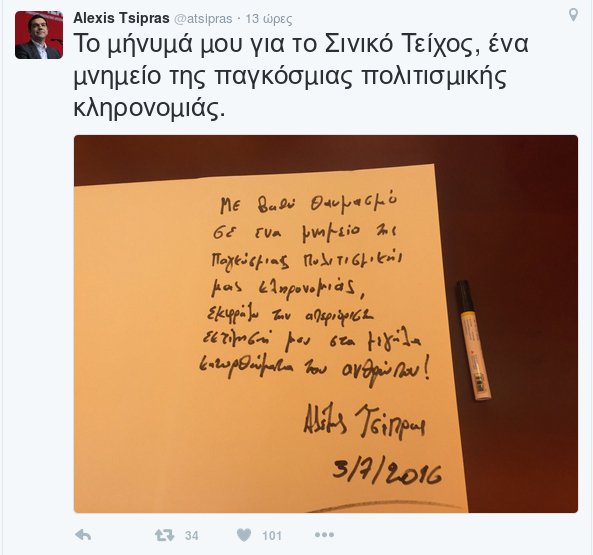 Alexis Tsipras @atsipras · 13 ώρες
Το μήνυμά μου για το Σινικό Τείχος, ένα
μνημείο της παγκόσμιας πολιτισμικής
κληρονομιάς.
Με βαθύ θαυμασμό
σε ένα μνημείο της
παγκόσμιας πολιτισμικής
μας κληρονομιάς,
εκφράζω την απεριόριστη
εκτίμησή μου στα μεγάλα
κατορθώματα του ανθρώπου!
Αλέξης Τσίπρας
3/7/2016
34 101